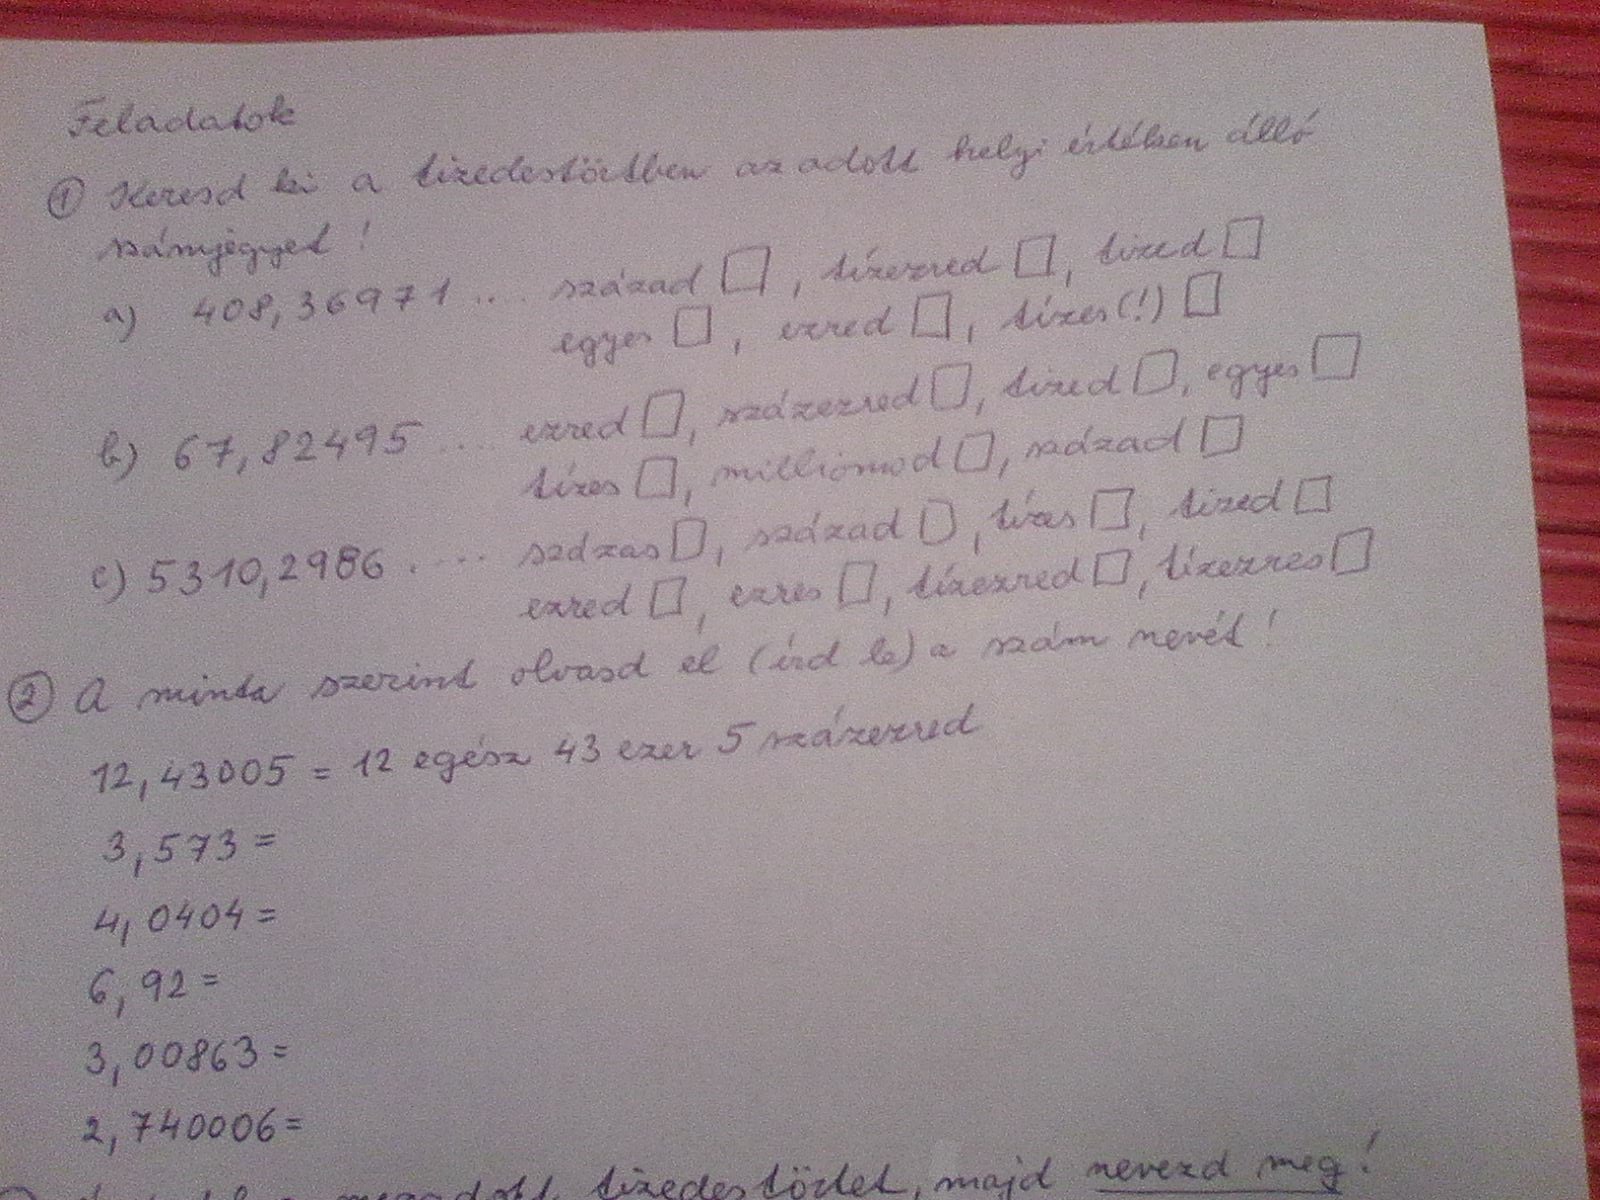 Feladatok
① Keresd ki a tizedestörtben az adott helyi értéken álló
számjegyet!
a) 408,36971 .... század □, tízezred □, tized □
egyes □, ezred □, tízes(!) □
b) 67,82495 .... ezred □, százezred □, tized □, egyes □
tízes □, milliomod □, század □
c) 5310,2986 .... százas □, század □, tízes □, tized □
ezred □, ezres □, tízezred □, tízezres □
② A minta szerint olvasd el (írd le) a szám nevét!
12,43005 = 12 egész 43 ezer 5 százezred
3,573 =
4,0404 =
6,92 =
3,00863 =
2,740006 =
tizedestörtet, majd nevezd meg!